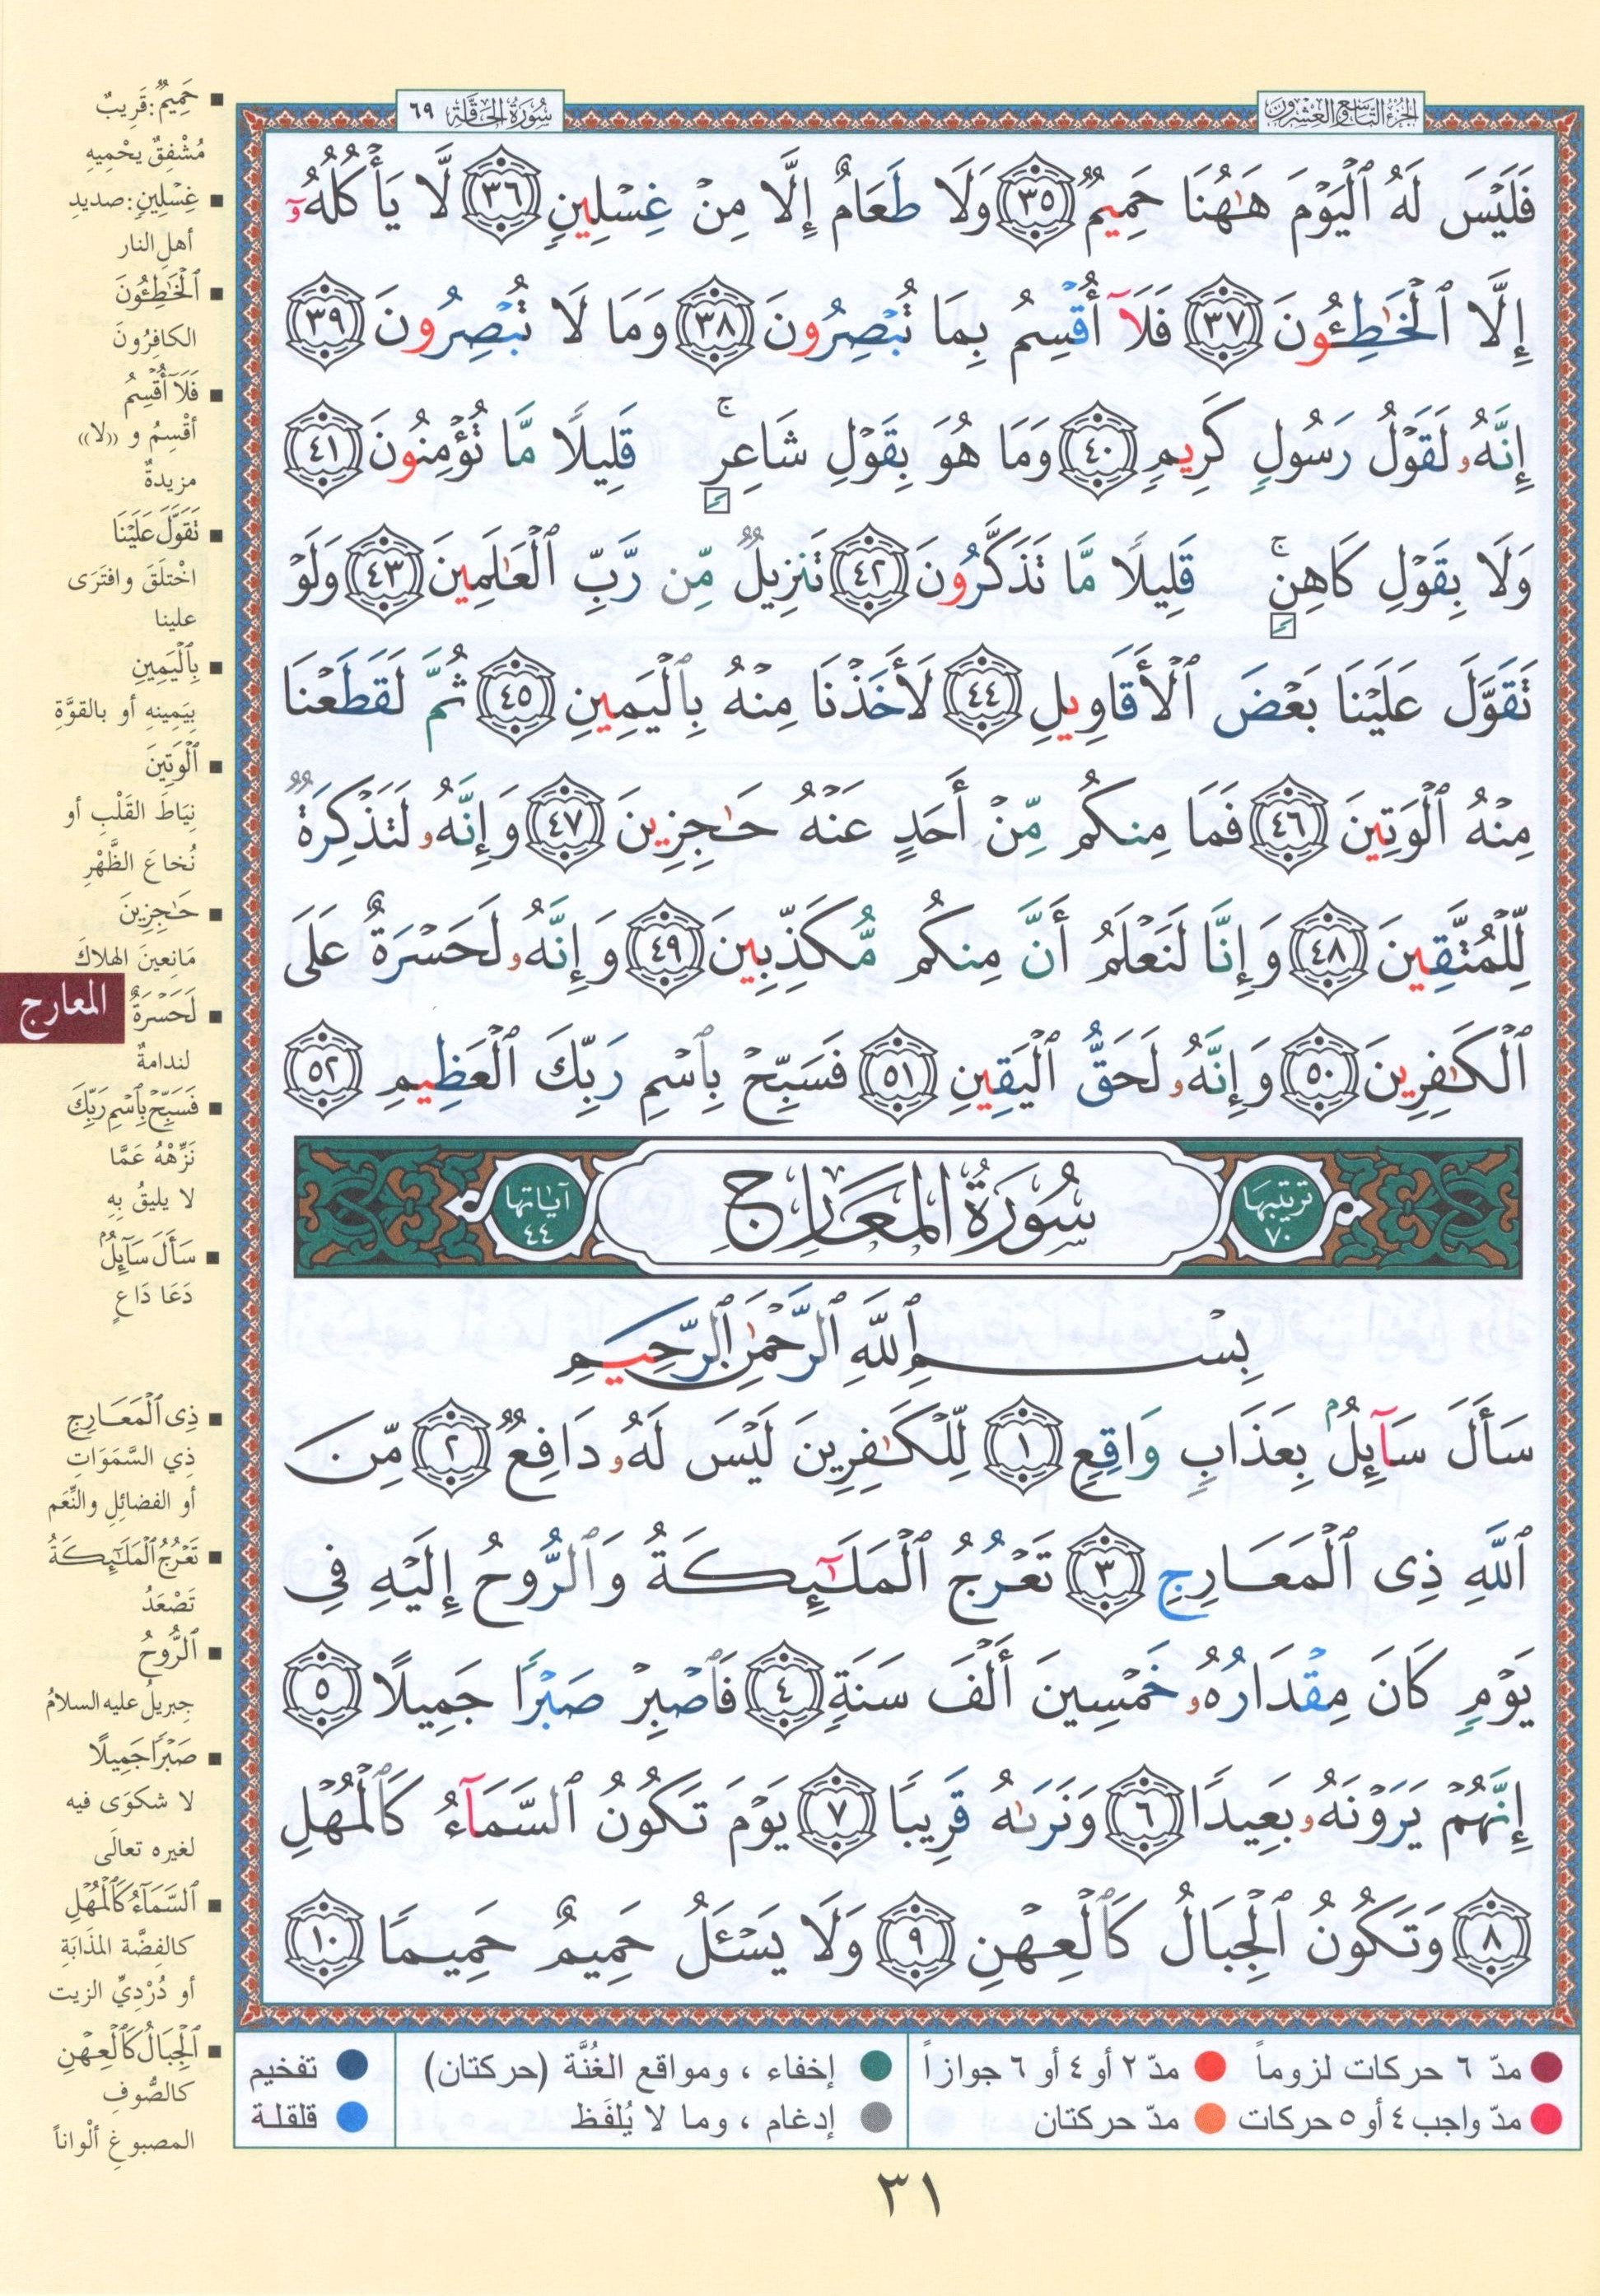 الجزء التاسع والعشرون
سُورَةُ الحَاقَّة ٦٩
فَلَيْسَ لَهُ ٱلْيَوْمَ هَٰهُنَا حَمِيمٌ ٣٥ وَلَا طَعَامٌ إِلَّا مِنْ غِسْلِينٍ ٣٦ لَّا يَأْكُلُهُۥٓ
إِلَّا ٱلْخَٰطِـُٔونَ ٣٧ فَلَآ أُقْسِمُ بِمَا تُبْصِرُونَ ٣٨ وَمَا لَا تُبْصِرُونَ ٣٩
إِنَّهُۥ لَقَوْلُ رَسُولٍ كَرِيمٍ ٤٠ وَمَا هُوَ بِقَوْلِ شَاعِرٍ ۚ قَلِيلًا مَّا تُؤْمِنُونَ ٤١
وَلَا بِقَوْلِ كَاهِنٍ ۚ قَلِيلًا مَّا تَذَكَّرُونَ ٤٢ تَنزِيلٌ مِّن رَّبِّ ٱلْعَٰلَمِينَ ٤٣ وَلَوْ
تَقَوَّلَ عَلَيْنَا بَعْضَ ٱلْأَقَاوِيلِ ٤٤ لَأَخَذْنَا مِنْهُ بِٱلْيَمِينِ ٤٥ ثُمَّ لَقَطَعْنَا
مِنْهُ ٱلْوَتِينَ ٤٦ فَمَا مِنكُم مِّنْ أَحَدٍ عَنْهُ حَٰجِزِينَ ٤٧ وَإِنَّهُۥ لَتَذْكِرَةٌ
لِّلْمُتَّقِينَ ٤٨ وَإِنَّا لَنَعْلَمُ أَنَّ مِنكُم مُّكَذِّبِينَ ٤٩ وَإِنَّهُۥ لَحَسْرَةٌ عَلَى
ٱلْكَٰفِرِينَ ٥٠ وَإِنَّهُۥ لَحَقُّ ٱلْيَقِينِ ٥١ فَسَبِّحْ بِٱسْمِ رَبِّكَ ٱلْعَظِيمِ ٥٢
ترتيبها ٧٠ سُورَةُ المَعَارِجِ آياتها ٤٤
بِسْمِ ٱللَّهِ ٱلرَّحْمَٰنِ ٱلرَّحِيمِ
سَأَلَ سَآئِلٌۢ بِعَذَابٍ وَاقِعٍ ١ لِّلْكَٰفِرِينَ لَيْسَ لَهُۥ دَافِعٌ ٢ مِّنَ
ٱللَّهِ ذِى ٱلْمَعَارِجِ ٣ تَعْرُجُ ٱلْمَلَٰٓئِكَةُ وَٱلرُّوحُ إِلَيْهِ فِى
يَوْمٍ كَانَ مِقْدَارُهُۥ خَمْسِينَ أَلْفَ سَنَةٍ ٤ فَٱصْبِرْ صَبْرًا جَمِيلًا ٥
إِنَّهُمْ يَرَوْنَهُۥ بَعِيدًا ٦ وَنَرَىٰهُ قَرِيبًا ٧ يَوْمَ تَكُونُ ٱلسَّمَآءُ كَٱلْمُهْلِ
٨ وَتَكُونُ ٱلْجِبَالُ كَٱلْعِهْنِ ٩ وَلَا يَسْـَٔلُ حَمِيمٌ حَمِيمًا ١٠
▪ حَمِيمٌ: قَرِيبٌ
مُشْفِقٌ يحْمِيهِ
▪ غِسْلِينٍ: صديدِ
أهلِ النار
▪ ٱلْخَٰطِـُٔونَ
الكافِرُونَ
▪ فَلَآ أُقْسِمُ
أقْسِمُ و «لا»
مزيدةٌ
▪ تَقَوَّلَ عَلَيْنَا
اخْتلَقَ وافتَرَى
علينا
▪ بِٱلْيَمِينِ
بِيَمِينِهِ أو بالقوَّةِ
▪ ٱلْوَتِينَ
نِيَاطَ القَلْبِ أو
نُخاعَ الظَّهْرِ
▪ حَٰجِزِينَ
مَانِعينَ الهلاكَ
▪ لَحَسْرَةٌ
لندامةٌ
▪ فَسَبِّحْ بِٱسْمِ رَبِّكَ
نَزِّهْهُ عَمَّا
لا يليقُ بِهِ
▪ سَأَلَ سَآئِلٌۢ
دَعَا دَاعٍ
▪ ذِى ٱلْمَعَارِجِ
ذِي السَّمَوَاتِ
أو الفضائلِ والنِّعَم
▪ تَعْرُجُ ٱلْمَلَٰٓئِكَةُ
تَصْعَدُ
▪ ٱلرُّوحُ
جِبريلُ عليه السلامُ
▪ صَبْرًا جَمِيلًا
لا شكوَى فيه
لغيره تعالَى
▪ ٱلسَّمَآءُ كَٱلْمُهْلِ
كالفِضَّة المذَابَةِ
أو دُرْدِيِّ الزيت
▪ ٱلْجِبَالُ كَٱلْعِهْنِ
كالصُّوفِ
المصبوغِ ألْواناً
المعارج
مدّ ٦ حركات لزوماً مدّ ٢ أو ٤ أو ٦ جوازاً إخفاء ، ومواقع الغُنَّة (حركتان) تفخيم
مدّ واجب ٤ أو ٥ حركات مدّ حركتان إدغام ، وما لا يُلفَظ قلقلة
٣١